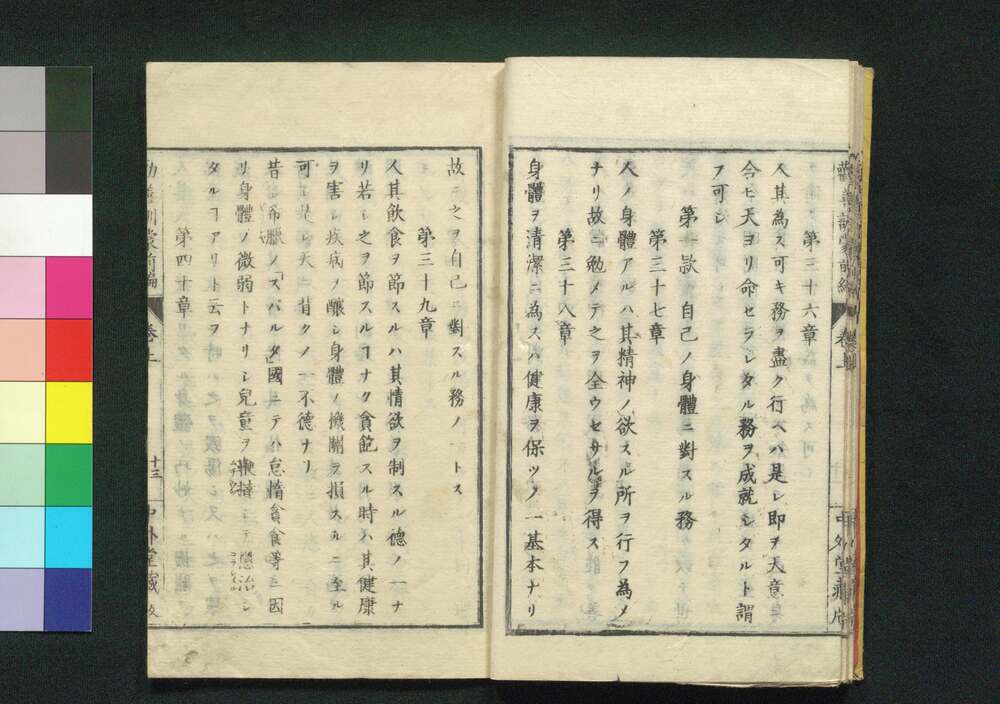 勸善訓蒙前編 巻上
中外堂藏版
第三十六章
人其為ス可キ務ヲ盡ク行ヘハ是レ即ヲ天意
今ヒ天ヨリ命セラレタル務ヲ成就シタルト謂
フ可シ
第一款 自己ノ身體ニ對スル務
第三十七章
人ノ身體アルハ其精神ノ欲スル所ヲ行フ為メ
ナリ故ニ勉メテ之ヲ全ウセサルヲ得ス
第三十八章
身體ヲ清潔ニ為スハ健康ヲ保ツノ一基本ナリ
故ニ之ヲ自己ニ對スル務ノ一トス
第三十九章
人其飲食ヲ節スルハ其情欲ヲ制スル德ノ一ナ
リ若シ之ヲ節スルヿナク貪飽スル時ハ其健康
ヲ害シ疾病ヲ釀シ身體ノ機關ヲ損スルニ至ル
可シ是レ天ニ背クノ一不德ナリ
昔者希臘ノ「スパルタ」國ニテハ怠惰貪食等ニ因
リ身體ノ微弱トナリシ兒童ヲ鞭撻シテ懲治シ
タルヿアリト云フ
第四十章
勸善訓蒙前編 巻上 十三 中外堂藏版